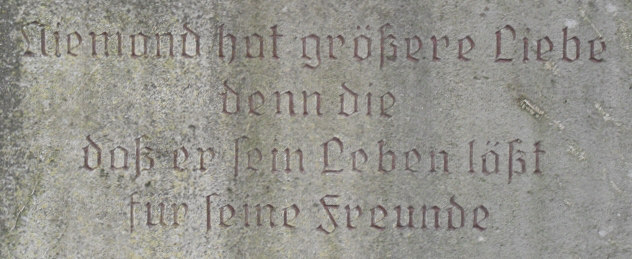 Niemand hat größere Liebe
denn die
daß er sein Leben läßt
für seine Freunde